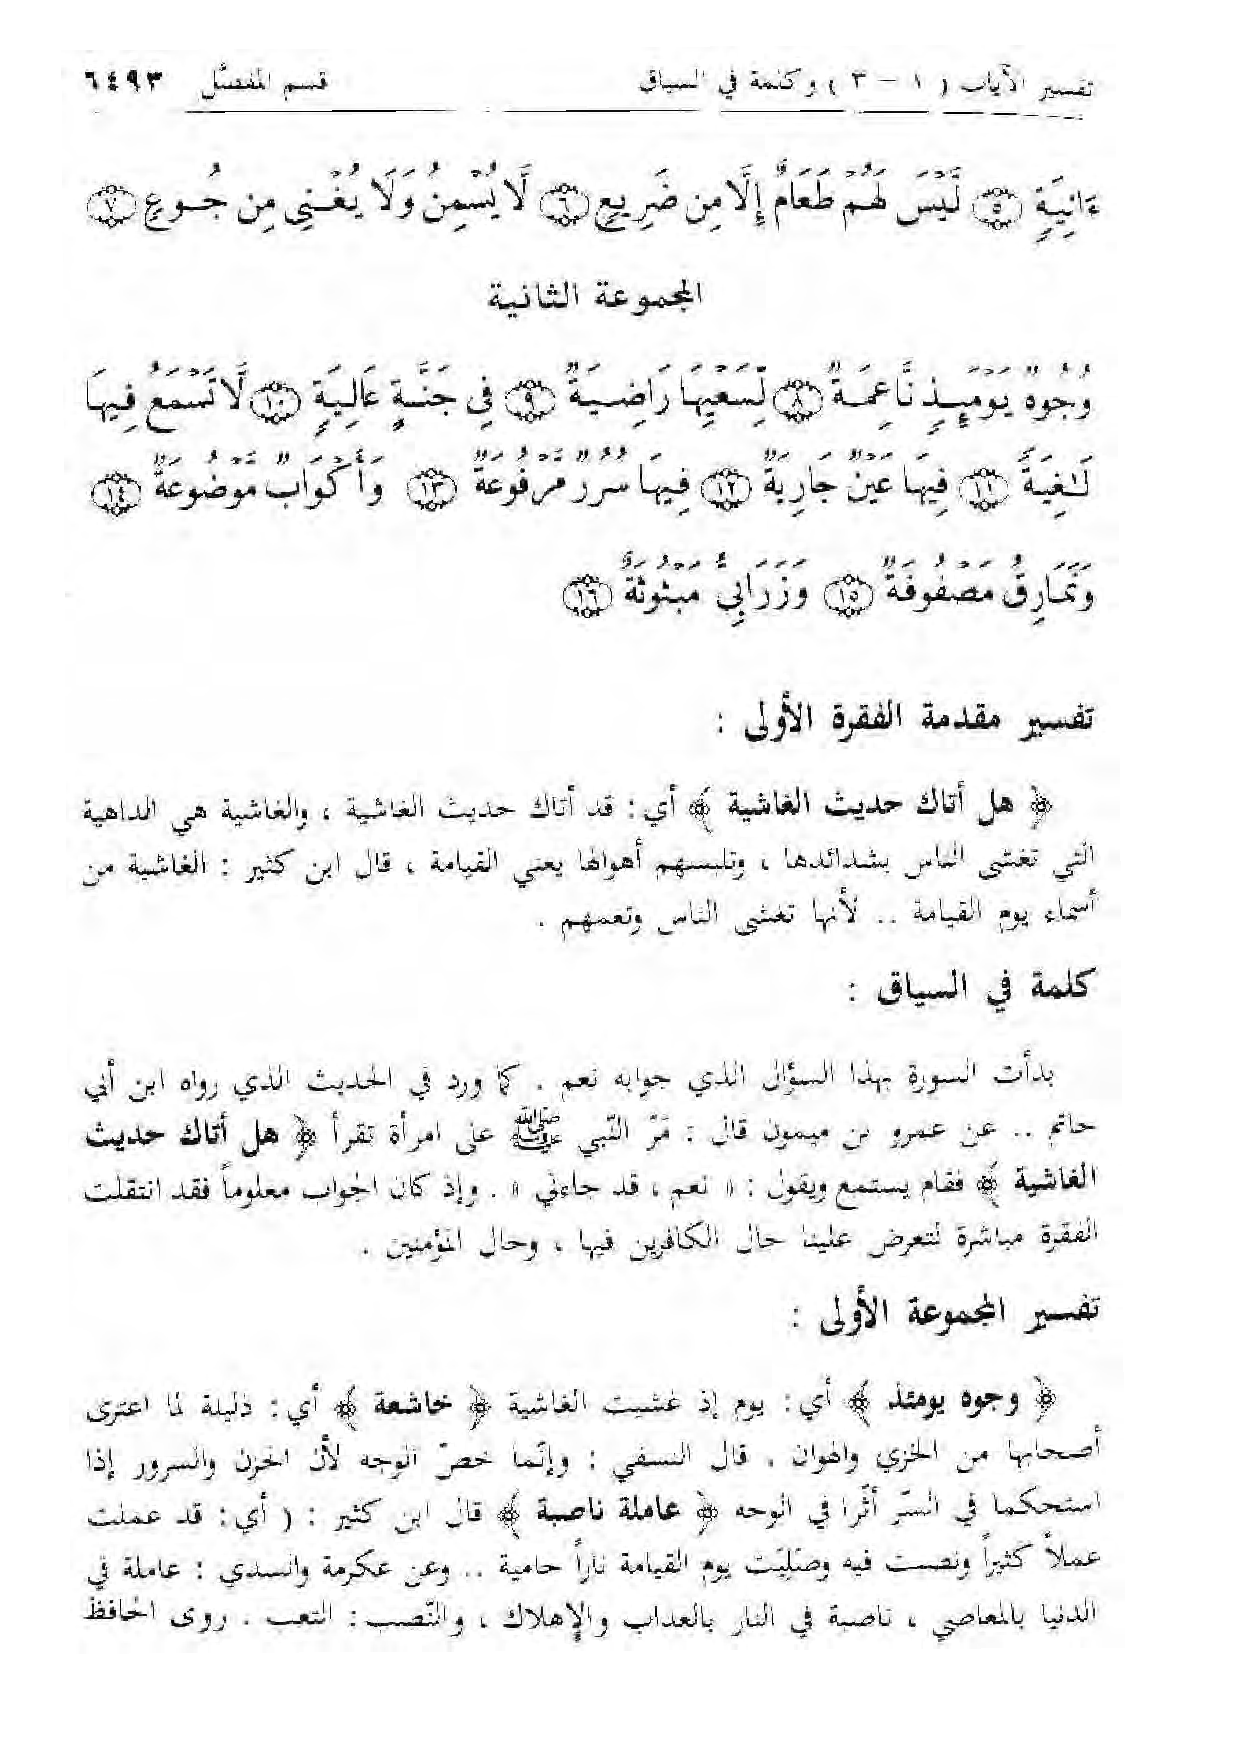 تفسير الآيات ( ١ - ٣ ) وكلمة في السياق قسم المفصَّل ٦٤٩٣
ءَانِيَةٍ ۝٥ لَّيْسَ لَهُمْ طَعَامٌ إِلَّا مِن ضَرِيعٍ ۝٦ لَّا يُسْمِنُ وَلَا يُغْنِي مِن جُوعٍ ۝٧
المجموعة الثانية
وُجُوهٌ يَوْمَئِذٍ نَّاعِمَةٌ ۝٨ لِّسَعْيِهَا رَاضِيَةٌ ۝٩ فِي جَنَّةٍ عَالِيَةٍ ۝١٠ لَّا تَسْمَعُ فِيهَا
لَٰغِيَةً ۝١١ فِيهَا عَيْنٌ جَارِيَةٌ ۝١٢ فِيهَا سُرُرٌ مَّرْفُوعَةٌ ۝١٣ وَأَكْوَابٌ مَّوْضُوعَةٌ ۝١٤
وَنَمَارِقُ مَصْفُوفَةٌ ۝١٥ وَزَرَابِيُّ مَبْثُوثَةٌ ۝١٦
تفسير مقدمة الفقرة الأولى :
﴿ هل أتاك حديث الغاشية ﴾ أي : قد أتاك حديث الغاشية ، والغاشية هي الداهية
التي تغشى الناس بشدائدها ، وتلبسهم أهوالها يعني القيامة ، قال ابن كثير : الغاشية من
أسماء يوم القيامة .. لأنها تغشى الناس وتعمهم .
كلمة في السياق :
بدأت السورة بهذا السؤال الذي جوابه نعم . كما ورد في الحديث الذي رواه ابن أبي
حاتم .. عن عمرو بن ميمون قال : مَرّ النّبي ﷺ على امرأة تقرأ ﴿ هل أتاك حديث
الغاشية ﴾ فقام يستمع ويقول : « نعم ، قد جاءني » . وإذ كان الجواب معلوماً فقد انتقلت
الفقرة مباشرة لتعرض علينا حال الكافرين فيها ، وحال المؤمنين .
تفسير المجموعة الأولى :
﴿ وجوه يومئذ ﴾ أي : يوم إذ غشيت الغاشية ﴿ خاشعة ﴾ أي : ذليلة لما اعترى
أصحابها من الخزي والهوان . قال النسفي : وإنّما خصّ الوجه لأن الحزن والسرور إذا
استحكما في السرّ أثّرا في الوجه ﴿ عاملة ناصبة ﴾ قال ابن كثير : ( أي : قد عملت
عملاً كثيراً ونصبت فيه وصَلِيَت يوم القيامة ناراً حامية .. وعن عكرمة والسدي : عاملة في
الدنيا بالمعاصي ، ناصبة في النار بالعذاب والإهلاك ، والنّصب : التعب . روى الحافظ